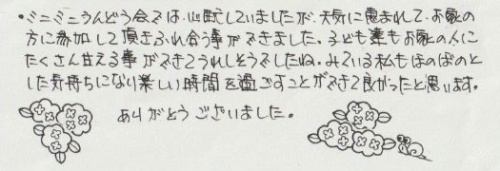 ・ミニミニうんどう会では、心配していましたが、天気に恵まれて、お家の
方に参加して頂きふれ合う事ができました。子ども達もお家の人に
たくさん甘える事ができてうれしそうでしたね。みている私もほのぼのと
した気持ちになり楽しい時間を過ごすことができて良かったと思います。
ありがとうございました。